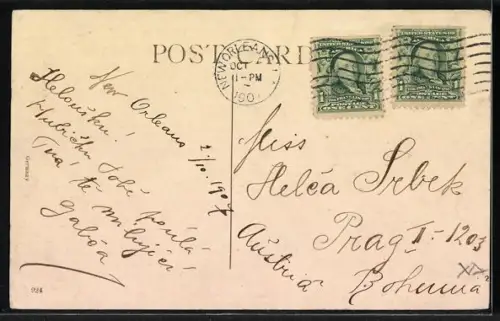 POST CARD
NEW ORLEANS
OCT
11-PM
190
New Orleans
2/10. 1907
Heloušku!
Hubičku Tobě posílá
Tvá, tě milující
Miss
Helča Srbek
Prag II-1203
Bohemia
Austria
Germany